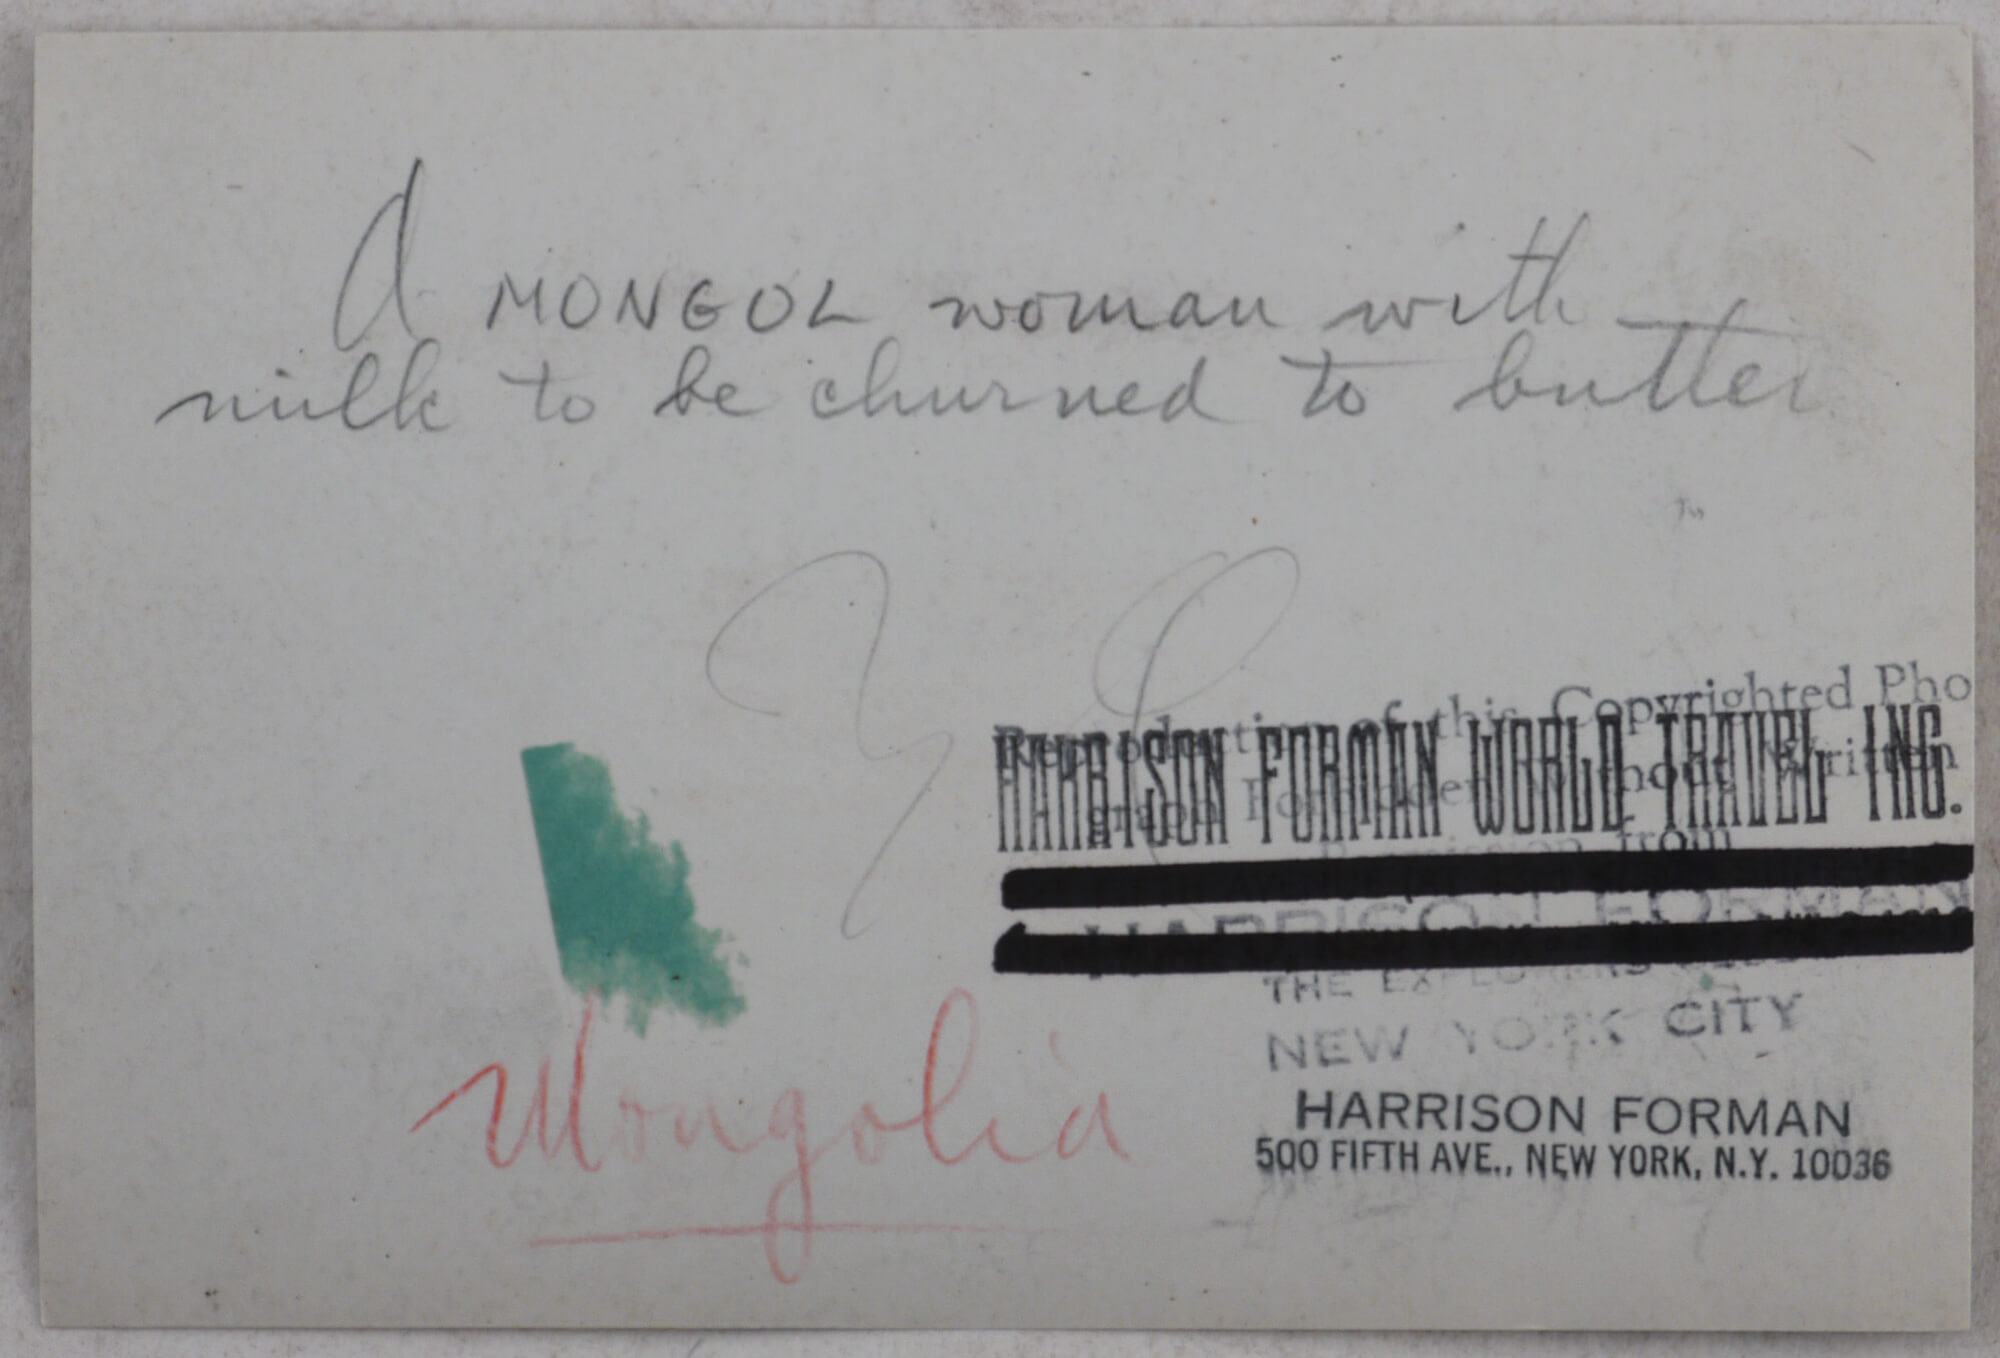 A MONGOL woman with
milk to be churned to butter
Reproduction of this Copyrighted Pho
HARRISON FORMAN WORLD TRAVEL INC.
Written
from
HARRISON FORMAN
THE EXPLORERS
NEW YORK CITY
Mongolia
HARRISON FORMAN
500 FIFTH AVE., NEW YORK, N.Y. 10036